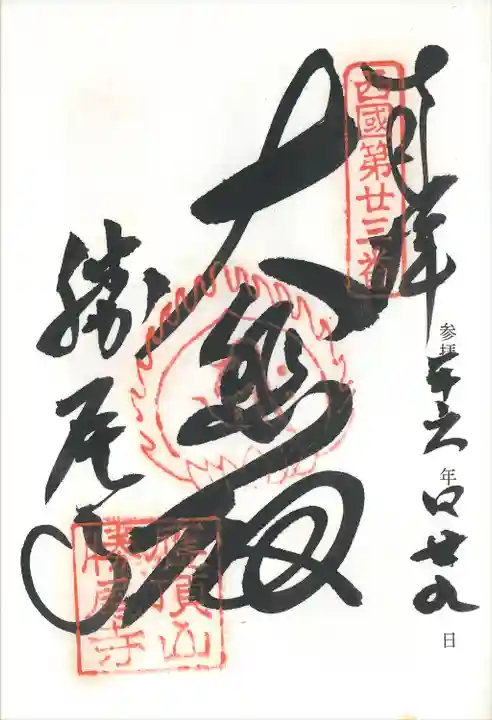 奉拝
西國第廿三番
参拝 平六年四廿九日
大悲殿
勝尾寺
應頂山
勝尾寺